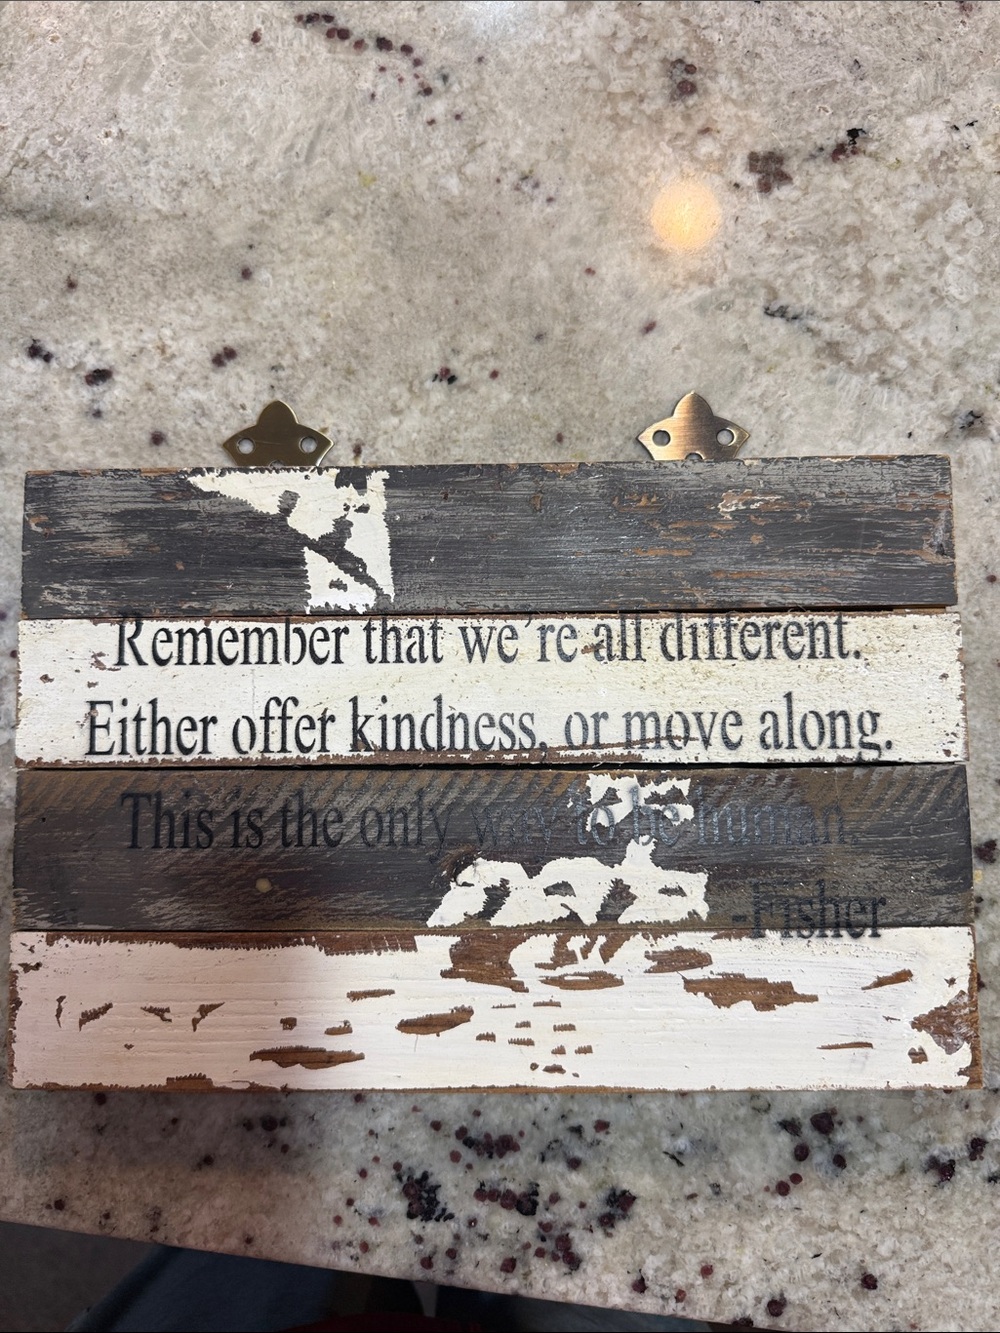 Remember that we're all different.
Either offer kindness, or move along.
This is the only way to be human.
-Fisher